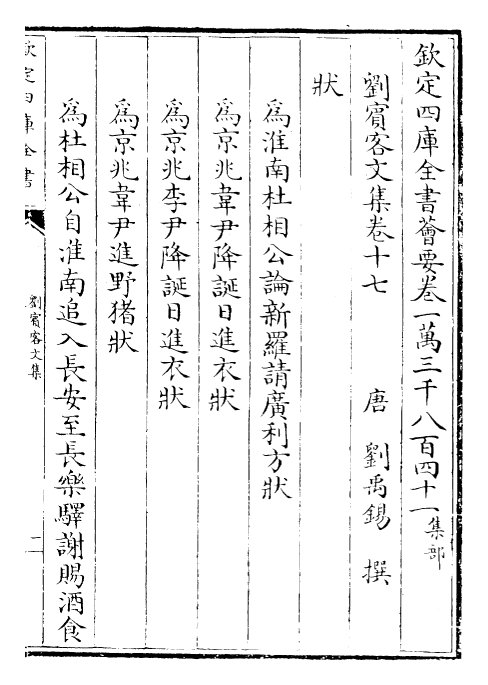 欽定四庫全書薈要卷一萬三千八百四十一集部
劉賓客文集卷十七 唐 劉禹錫 撰
狀
為淮南杜相公論新羅請廣利方狀
為京兆韋尹降誕日進衣狀
為京兆李尹降誕日進衣狀
為京兆韋尹進野猪狀
為杜相公自淮南追入長安至長樂驛謝賜酒食
欽定四庫全書
劉賓客文集
二